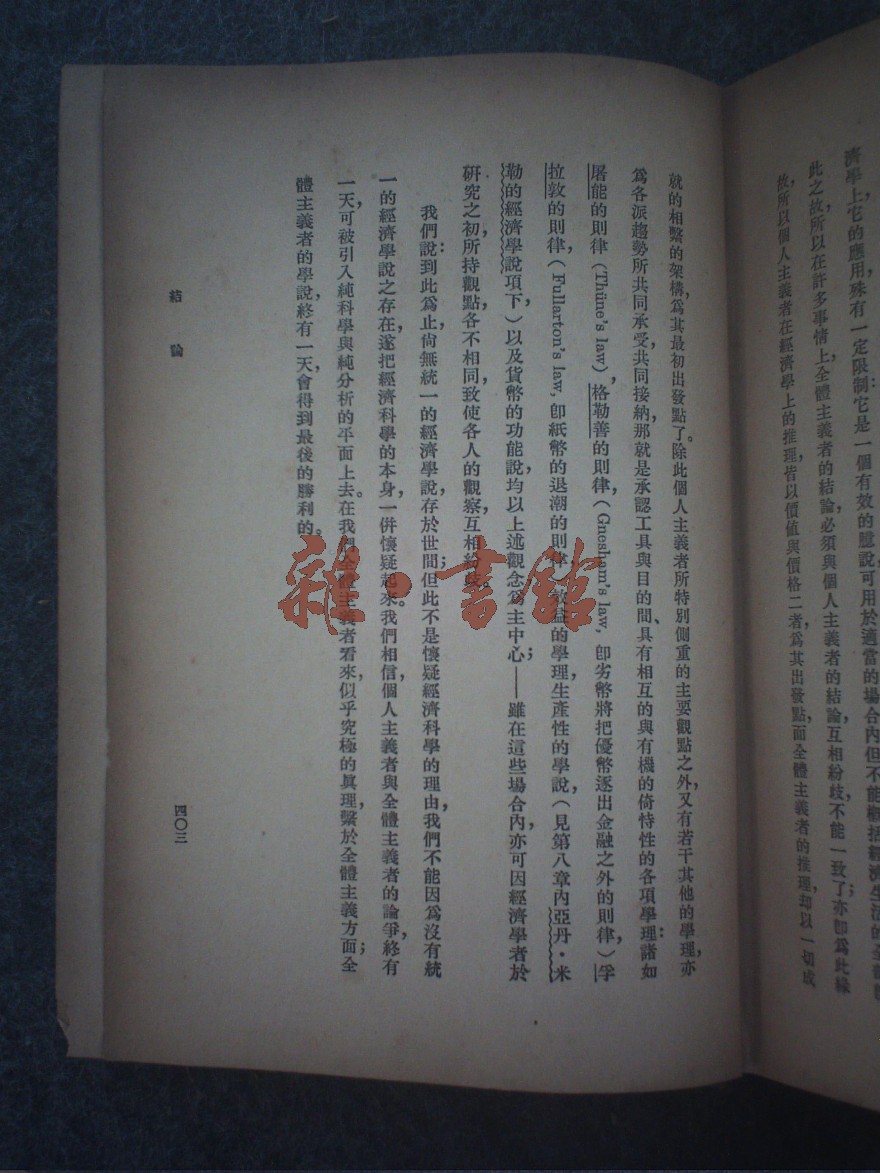 濟學上它的應用殊有一定限制它是一個有效的臆說可用於適當的場合內但不能概括經濟生活的全
此之故所以在許多事情上全體主義者的結論必須與個人主義者的結論互相紛歧不能一致了亦即爲此緣
故所以個人主義者在經濟學上的推理皆以價值與價格二者爲其出發點而全體主義者的推理却以一切成
就的相繫的架構爲其最初出發點了。除此個人主義者所特別側重的主要觀點之外又有若干其他的學理亦
爲各派趨勢所共同承受共同接納那就是承認工具與目的間、具有相互的與有機的倚恃性的各項學理諸如:
屠能的則律(Thüne's law),格勒善的則律(Gnesham's law, 卽劣幣將把優幣逐出金融之外的則律)孚
拉敦的則律,(Fullarton's law, 卽紙幣的退潮的則律)效益的學理生產性的學說,(見第八章內亞丹·米
勒的經濟學說項下)以及貨幣的功能說,均以上述觀念爲主中心;——雖在這些場合內,亦可因經濟學者於
硏究之初,所持觀點各不相同,致使各人的觀察,互相紛歧。
我們說到此爲止:尙無統一的經濟學說存於世間;但此不是懷疑經濟科學的理由,我們不能因爲沒有統
一的經濟學說之存在,遂把經濟科學的本身,一併懷疑起來。我們相信,個人主義者與全體主義者的論爭,終有
一天,可被引入純科學與純分析的平面上去。在我們全體主義者看來,似乎究極的眞理,繫於全體主義方面;全
體主義者的學說,終有一天,會得到最後的勝利的。
結論
四〇三
雜·書館